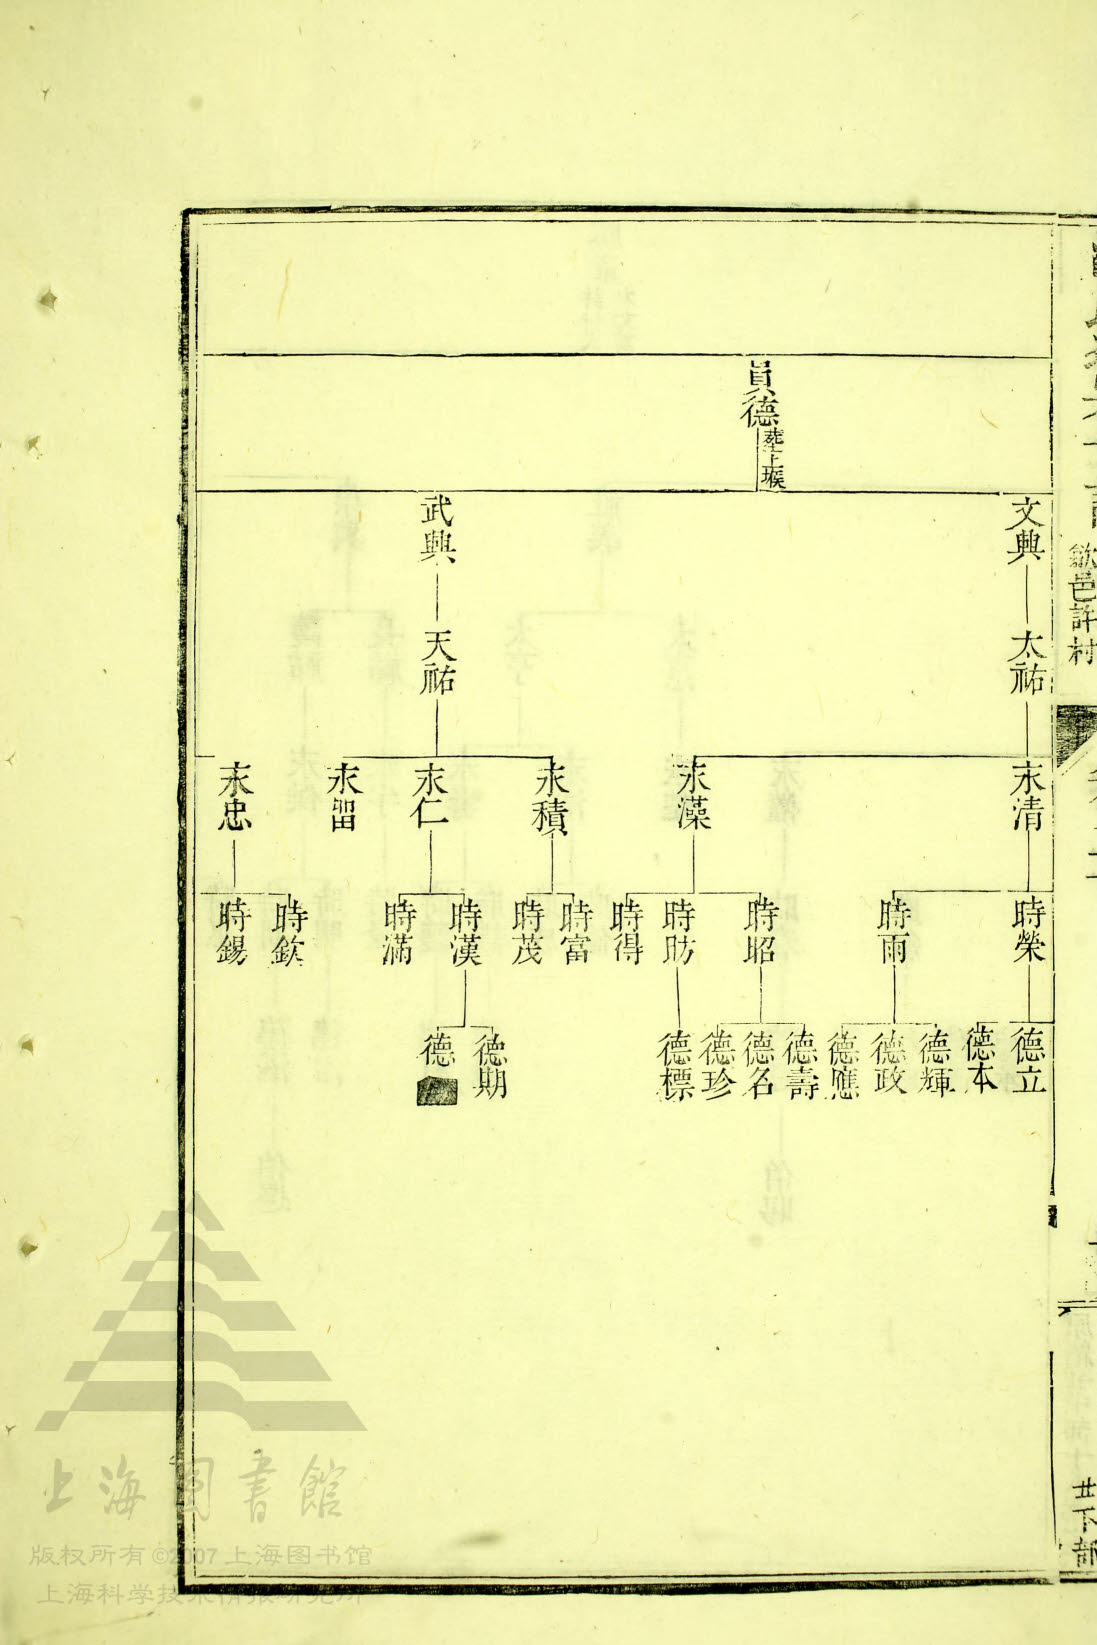 歙邑許村
廿下部
員德
葬上堠
文興
武興
太祐
天祐
永清
永藻
永積
永仁
永留
永忠
時榮
時雨
時昭
時昉
時得
時富
時茂
時漢
時滿
時欽
時錫
德立
德本
德輝
德政
德應
德壽
德名
德珍
德標
德期
德
上海图書館
版权所有©2007上海图书馆
上海科学技术情报研究所